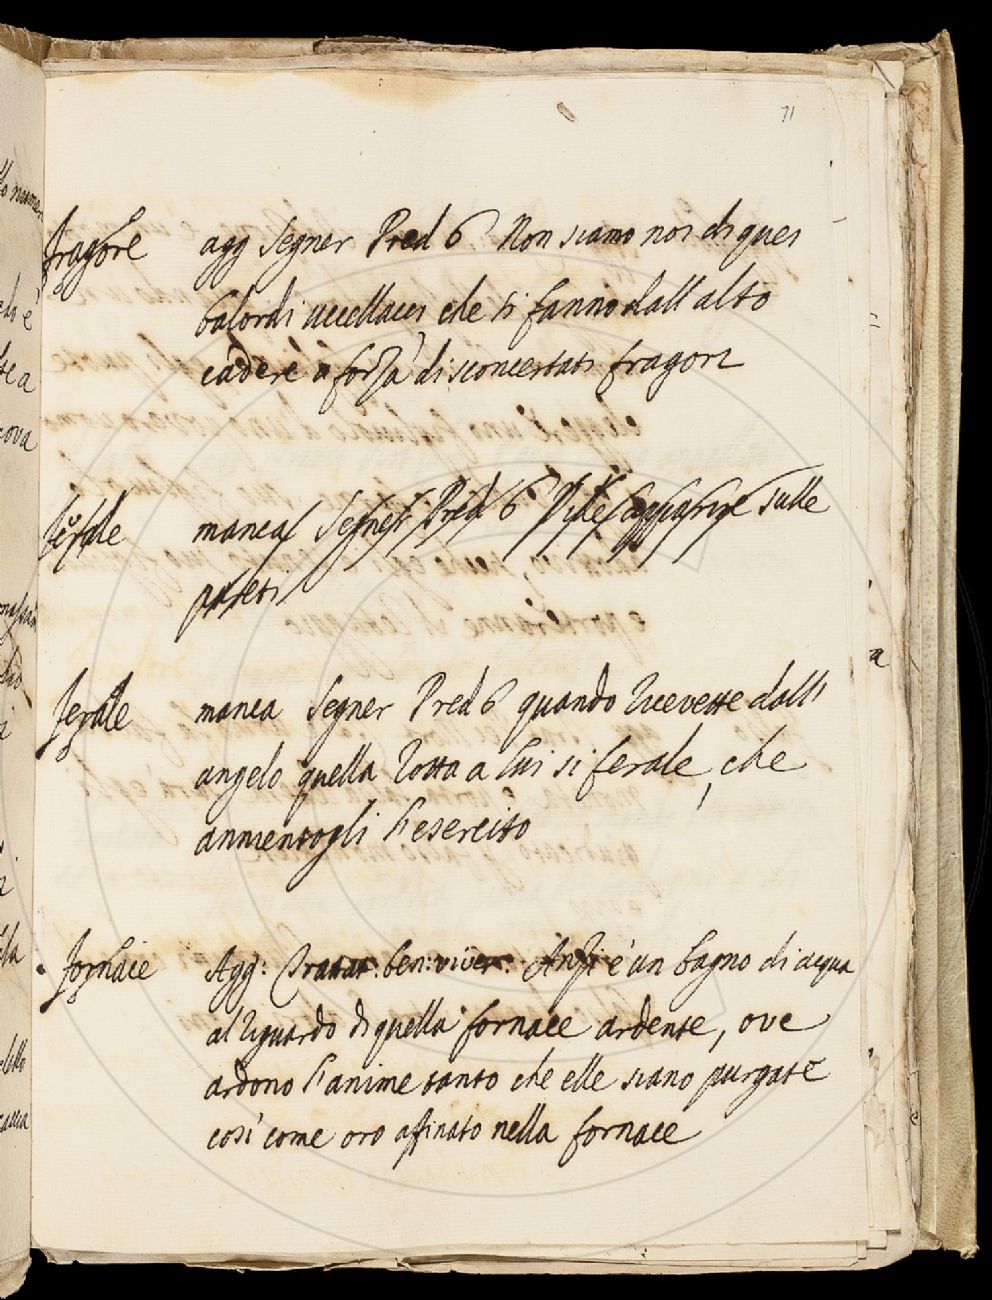 71
fragore agg Segner Pred 6 Non siamo noi di quei
balordi uccellacci, che si fanno dall alto
cadere a forza di sconcertati fragori
ferale manca Segner Pred 6 sulle
pareti
ferale manca Segner Pred 6 quando ricevette dall
angelo quella rotta a lui si ferale, che
annientogli l'esercito
fornace Agg: Trattat: ben: viver: Anzi è un bagno di acqua
al riguardo di quella fornace ardente, ove
ardono l'anime tanto che elle siano purgate
così come oro affinato nella fornace